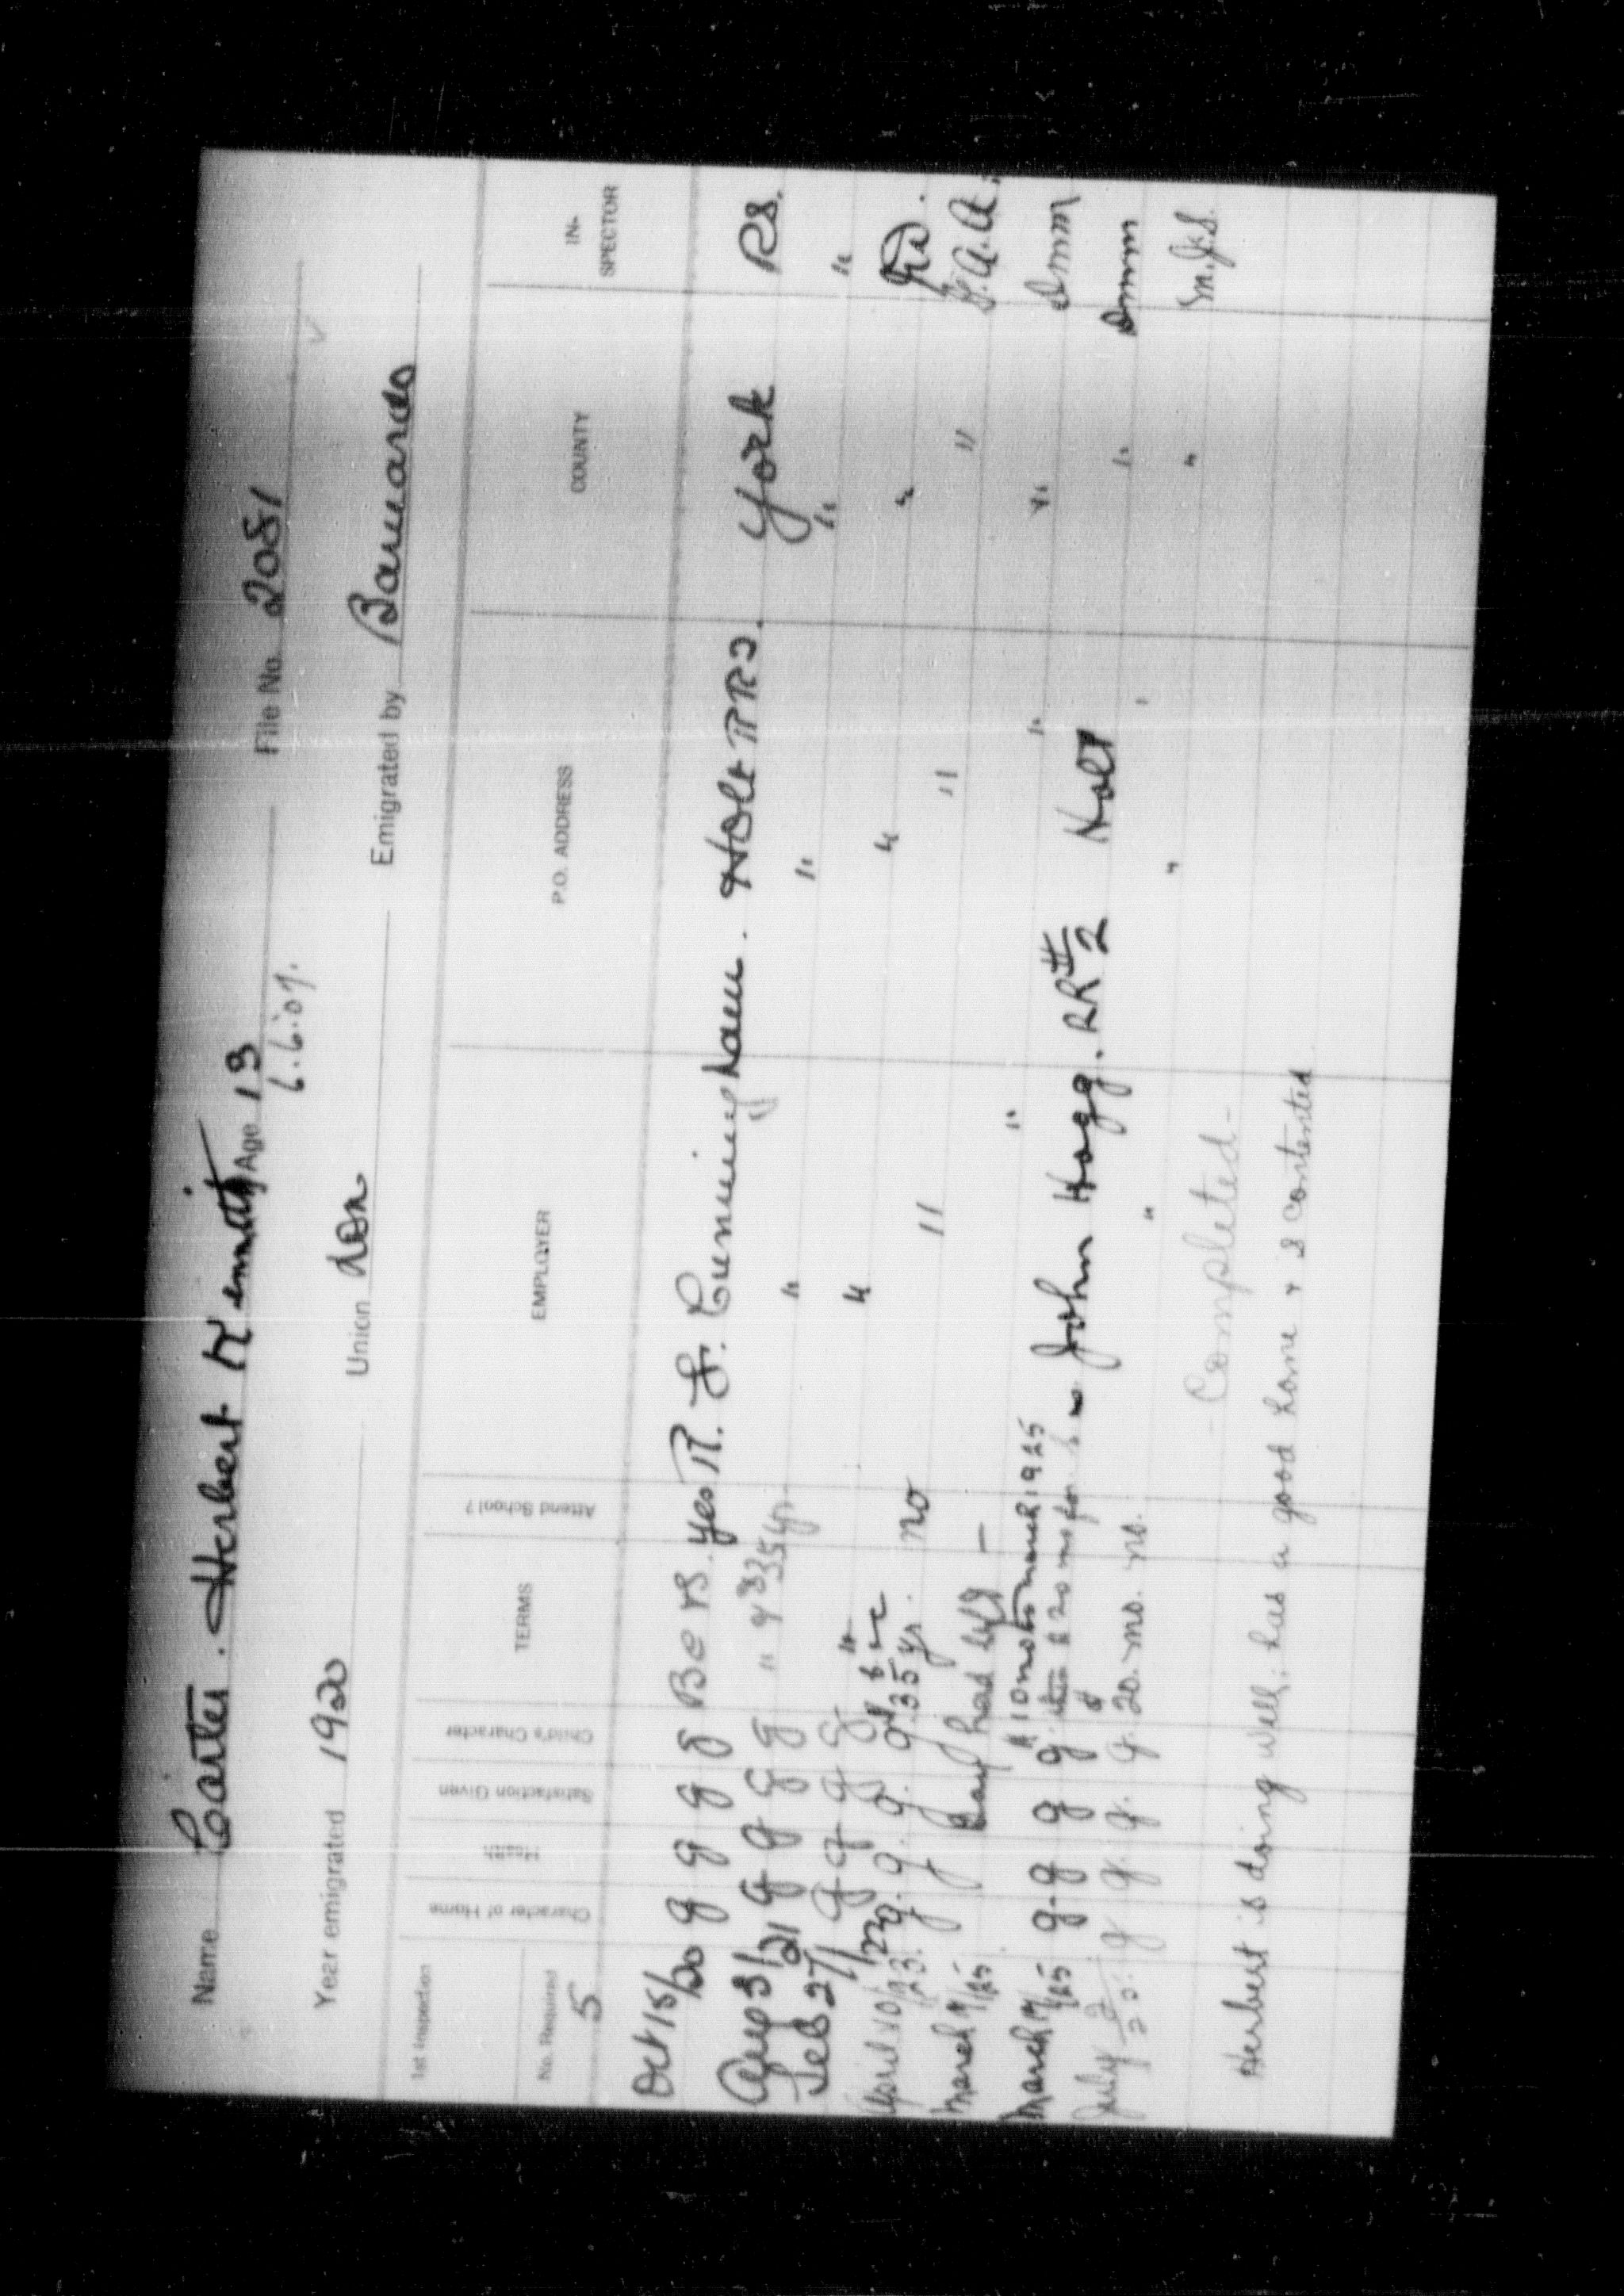 Name Carter. Herbert Age 13 File No. 2081
6.6.07.
Year emigrated 1920 Union Lon Emigrated by Barnardo
1st Inspection
No. Required Character of Home Health Satisfaction Given Child's Character TERMS Attend School? EMPLOYER P.O. ADDRESS COUNTY IN-SPECTOR
5
Oct 15/20 g g g g B C yes R. F. Cunningham. Holt RR2. York RS.
Aug 31/21 g g g g " 35 yr " " " "
Feb 27/22 g g g g " " " "
April 10/23. g. g. g. g. 35 yr. no " " "
March 17/25 Boy had left — "
March 17/25 g. g g g $10 mo to March 1925 " " " Dmm
then $20 mo for John Hogg. RR #2 Holt " Dmm
July g g g. g. $20. mo. no. " " " M.J.S.
- Completed -
Herbert is doing well; has a good home & is contented